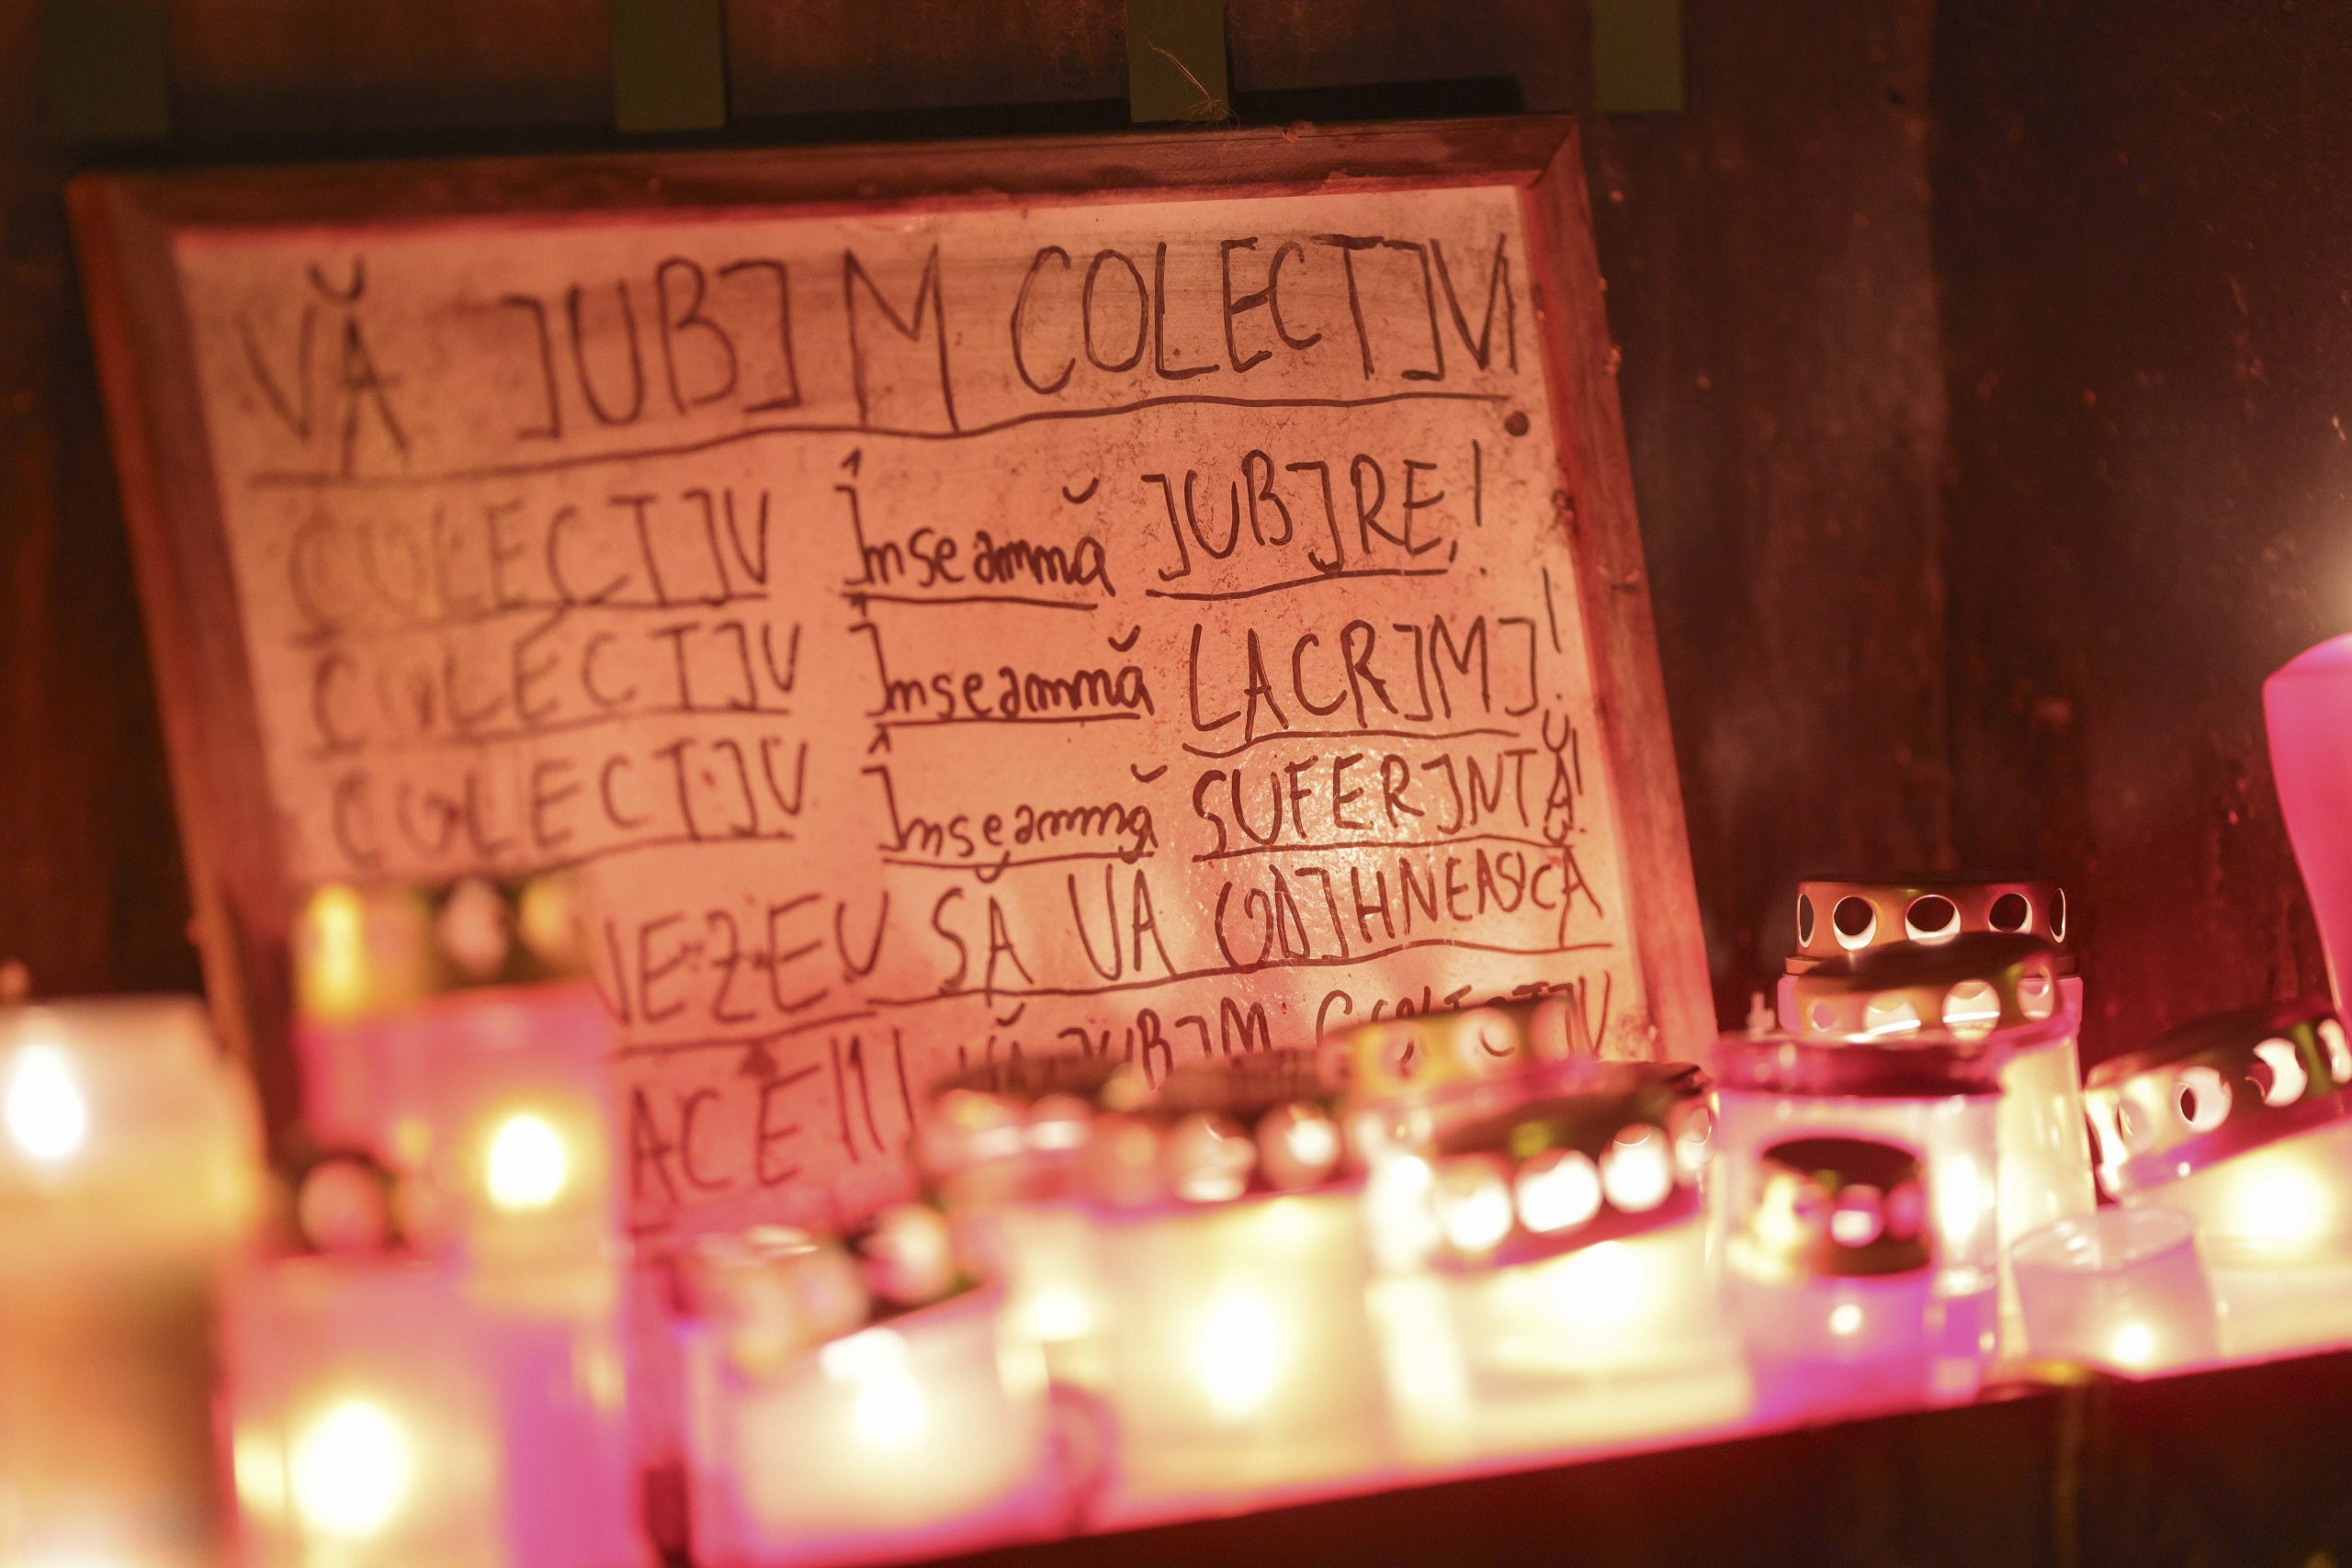 VĂ IUBIM COLECTIV!
COLECTIV Înseamnă IUBIRE!
COLECTIV Înseamnă LACRIMI!
COLECTIV Înseamnă SUFERINTĂ!
NEZEU SĂ VĂ ODIHNEASCĂ
ACE!!! VĂ IUBIM COLECTIV